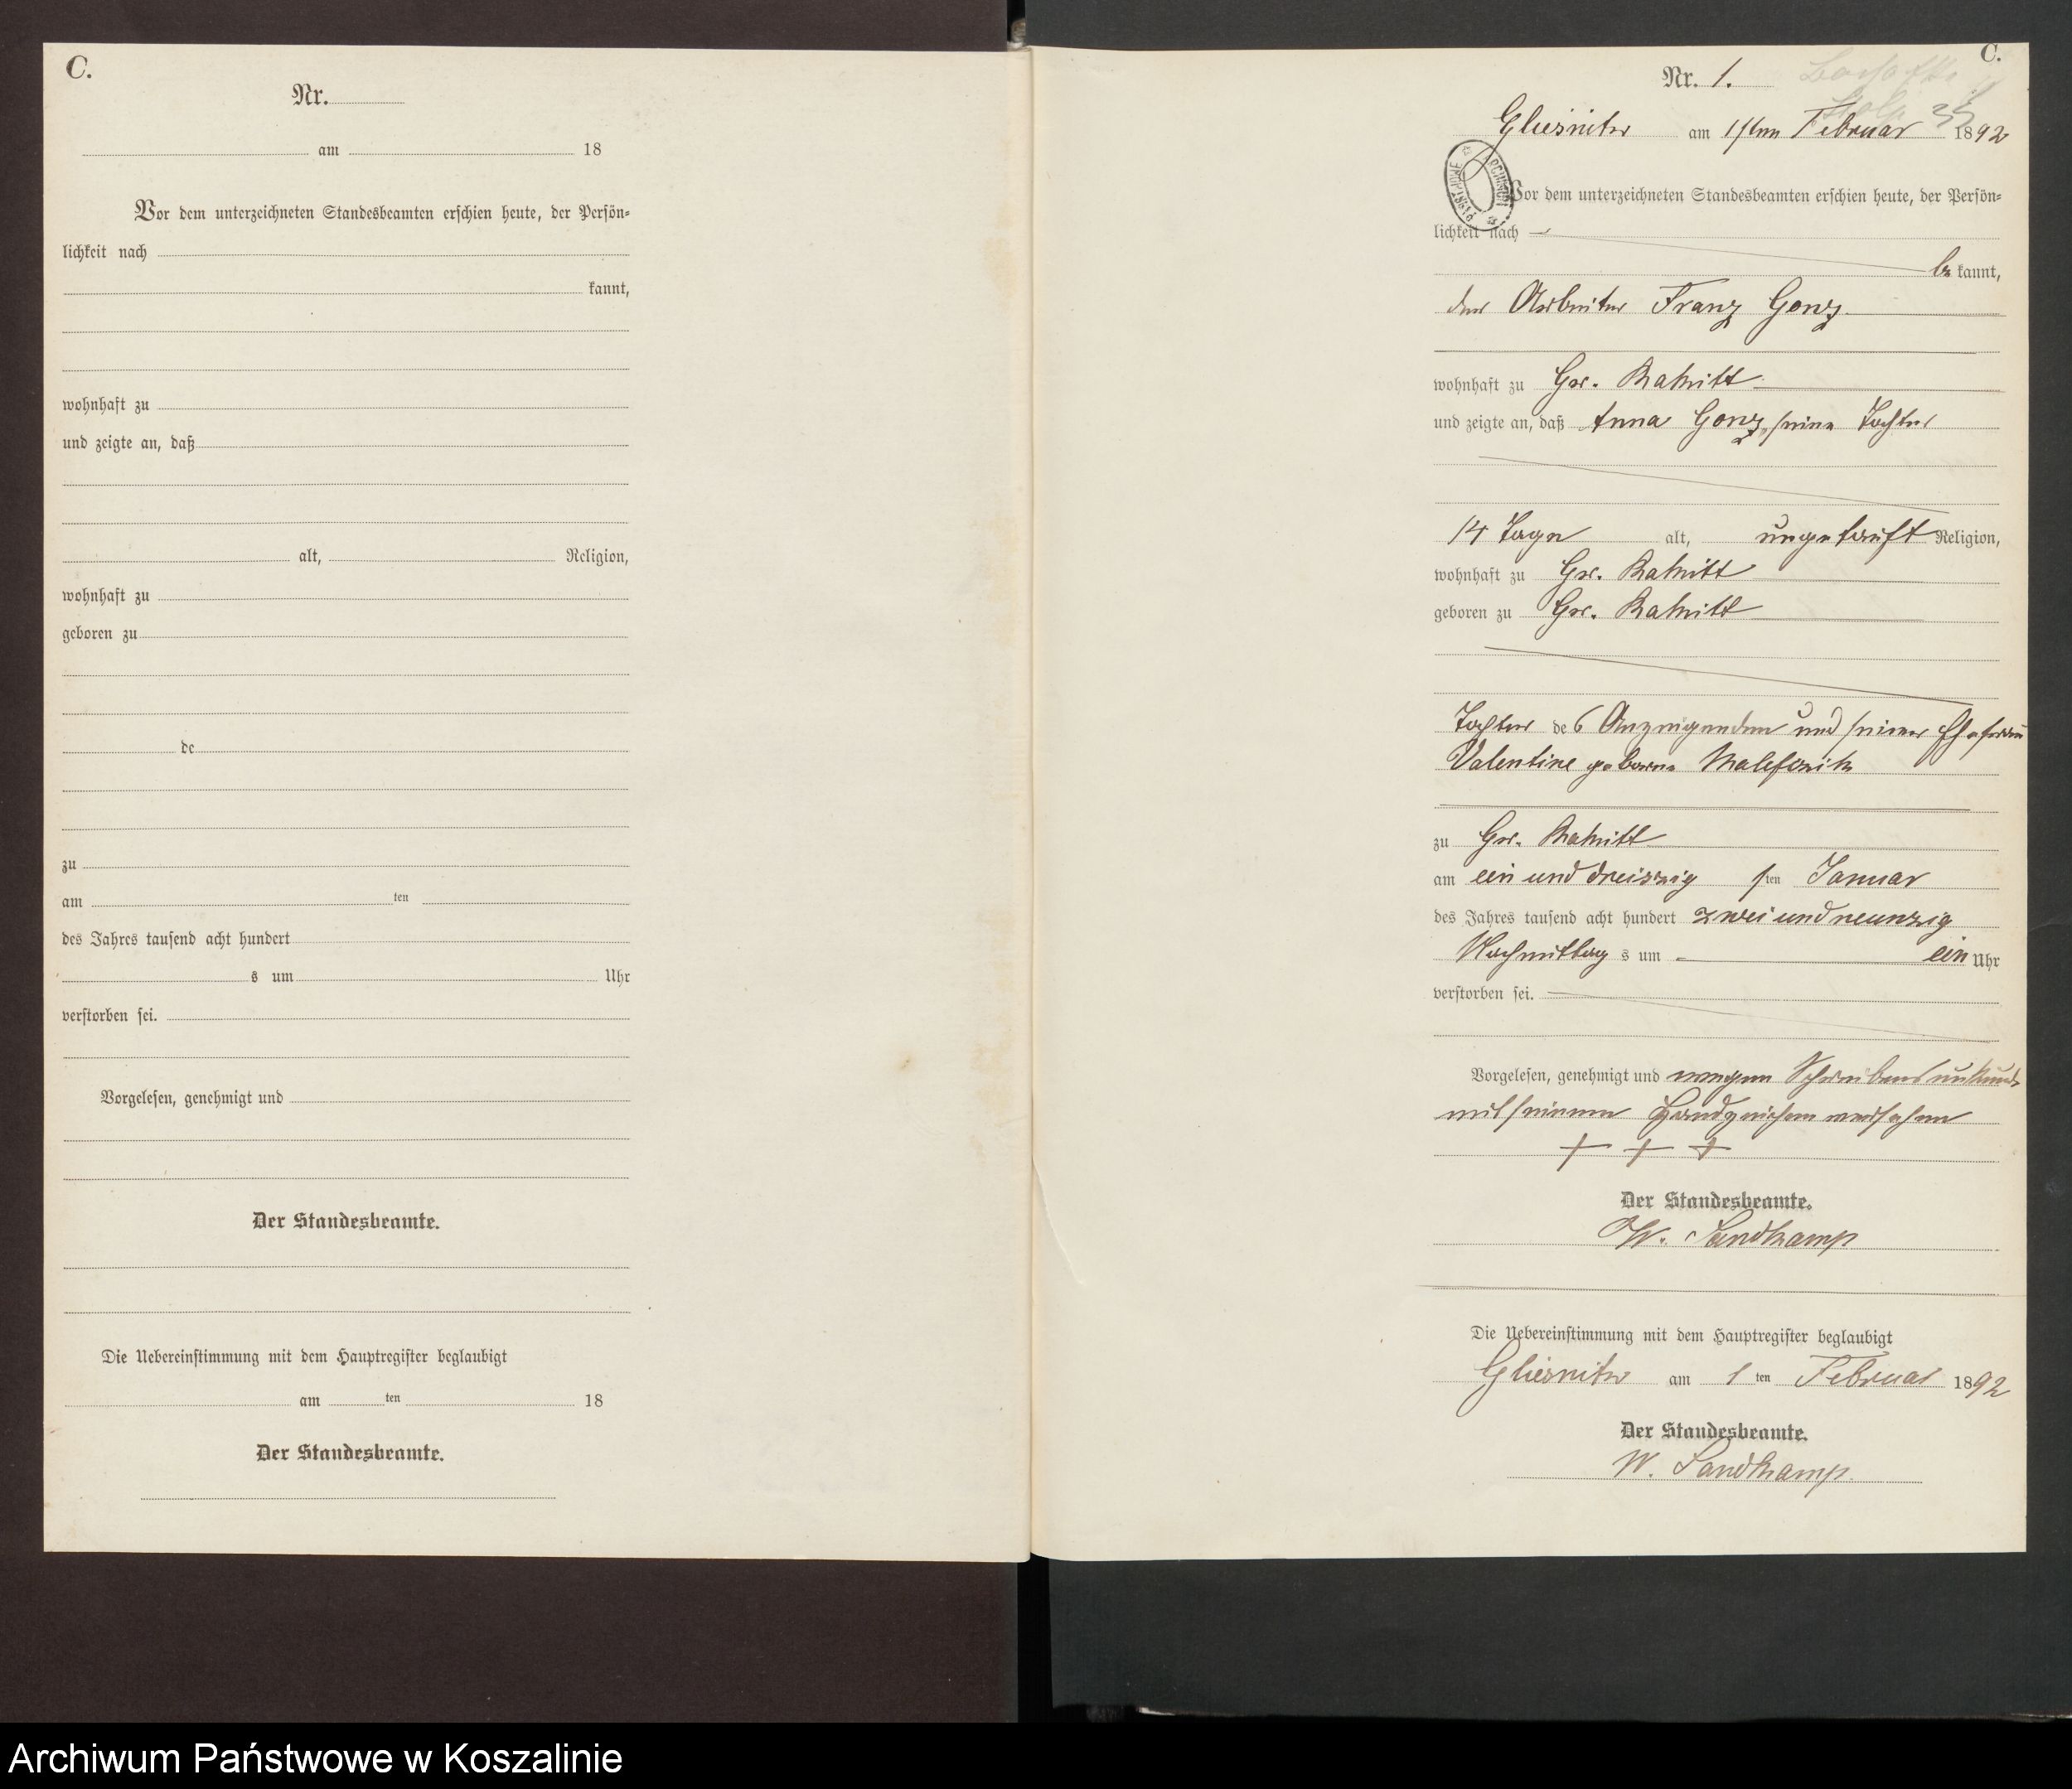 C.
Nr.
am 18
Vor dem unterzeichneten Standesbeamten erschien heute, der Persön-
lichkeit nach
kannt,
wohnhaft zu
und zeigte an, daß
alt, Religion,
wohnhaft zu
geboren zu
de
zu
am ten
des Jahres tausend acht hundert
s um Uhr
verstorben sei.
Vorgelesen, genehmigt und
Der Standesbeamte.
Die Uebereinstimmung mit dem Hauptregister beglaubigt
am ten 18
Der Standesbeamte.
C.
Nr. 1.
Gliesnitz am 1sten Februar 1892
Vor dem unterzeichneten Standesbeamten erschien heute, der Persön-
lichkeit nach
be kannt,
der Arbeiter Franz Gonz
wohnhaft zu Gr.
und zeigte an, daß Anna Gonz, seine Tochter
14 Tage alt, ungetauft Religion,
wohnhaft zu Gr.
geboren zu Gr.
Tochter des Anzeigenden und seiner Ehefrau
Valentine geborne
zu Gr.
am ein und dreiszig sten Januar
des Jahres tausend acht hundert zwei und neunzig
Nachmittag s um ein Uhr
verstorben sei.
Vorgelesen, genehmigt und wegen Schreibensunkunde
mit seinem Handzeichen versehen
+ + +
Der Standesbeamte.
W. Sandkamp
Die Uebereinstimmung mit dem Hauptregister beglaubigt
Gliesnitz am 1 ten Februar 1892
Der Standesbeamte.
W. Sandkamp.
Archiwum Państwowe w Koszalinie